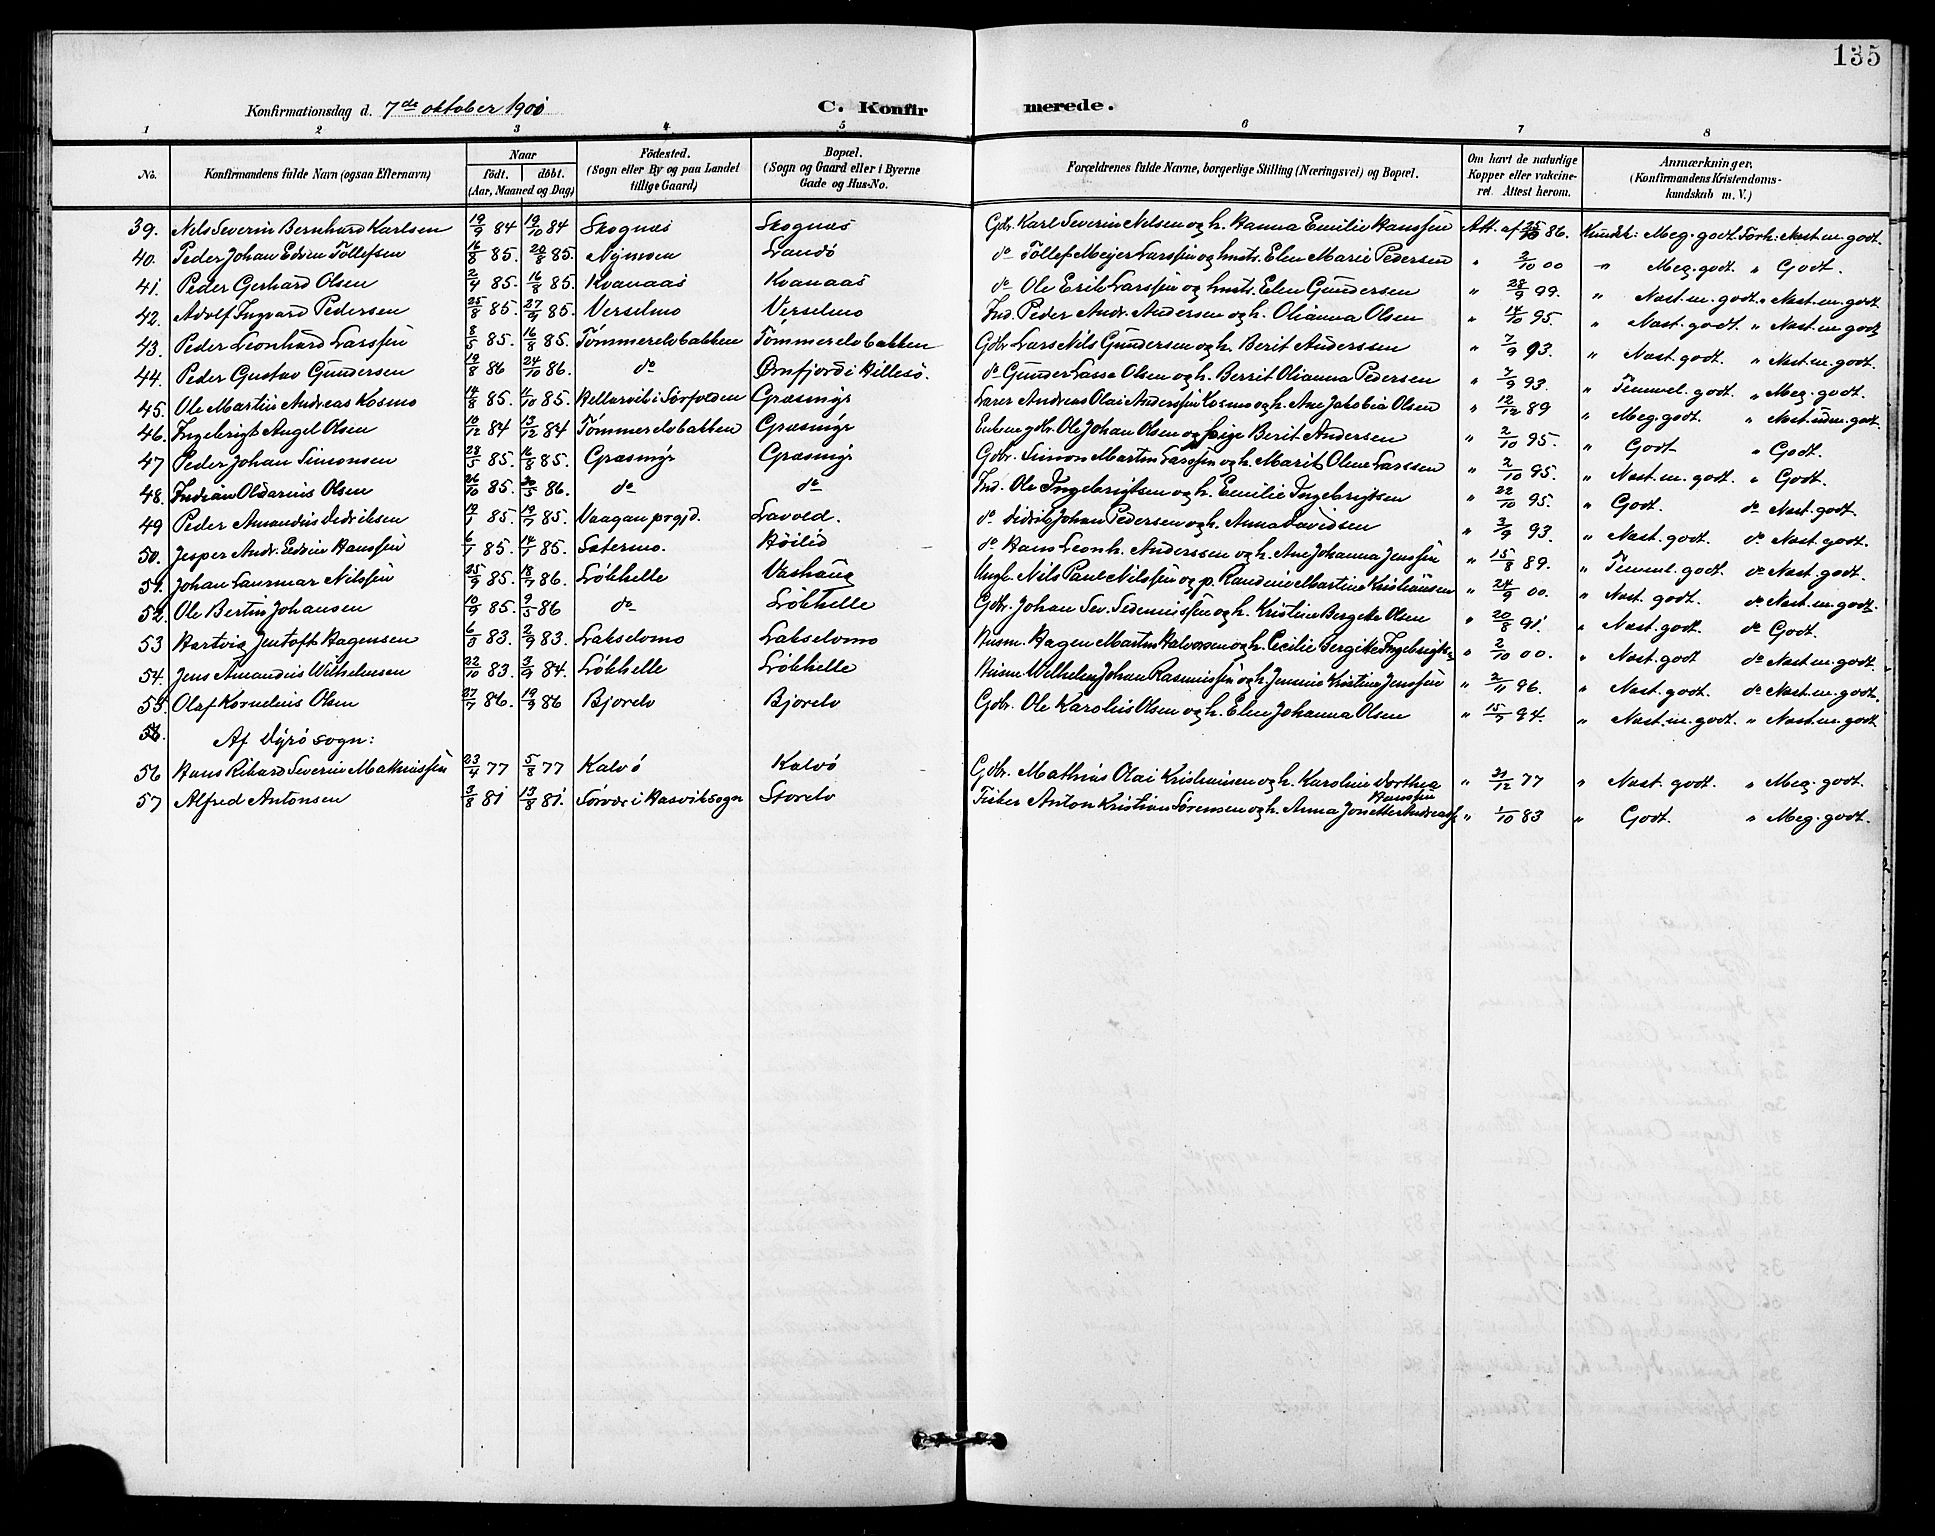 135
Konfirmationsdag d. 7de oktober 1900 C. Konfir merede.
1 2 3 4 5 6 7 8
No. Konfirmandens fulde Navn (ogsaa Efternavn) Naar Födt. döbt. (Aar, Maaned og Dag) Födested. (Sogn eller By og paa Landet tillige Gaard) Bopæl. (Sogn og Gaard eller i Byerne Gade og Hus-No. Forældrenes fulde Navne, borgerlige Stilling (Næringsvei) og Bopæl. Om havt de naturlige Kopper eller vakcineret. Attest herom. Anmærkninger. (Konfirmandens Kristendomskundskab m. V.)
39. Nels Severin Bernhard Karlsen 19/9 84 19/10 84 Skognæs Skognæs Gdbr. Karl Severin Nelsen og h. Hanna Emilie Hanssen Att. af 86. Kundsk: Meg. godt. Forh: Nast. m. godt.
40. Peder Johan Edvin Tollefsen 85. 20/8 85. Nymoen Sandö do Töllef Meyer Larssen og hustr. Elen Marie Pedersen " 2/10 00 " Meg. godt " Godt.
41. Peder Gerhard Olsen 85. 16/8 85. Kvanaas Kvanaas do Ole Erik Larssen og hustr. Elen Gundersen " 28/9 99. " Nast. m. godt " Nast. m. godt
42. Adolf Ingvard Pedersen 25/8 85. 27/9 85. Verselmo Verselmo Ind. Peder Andr. Andersen og h. Olianna Olsen " 14/10 95. " Nast. godt " Nast. m. godt
43. Peder Leonhard Larssen 8/5 85. 16/8 85. Tömmerelvbakken Tömmerelvbakken Gdbr Lars Nils Gundersen og h. Berit Anderssen " 7/9 93. " Nast. godt " Nast. m. godt.
44. Peder Gustav Gundersen 19/8 86 24/10 86. do Ørnfjord i Hillesö. do Gunder Lasse Olsen og h. Berrit Olianna Pedersen " 7/9 93. " Temmel. godt " Meg. godt.
45. Ole Martin Andreas Kosmo 14/8 85. 85. Hellarvik i Sörfolden Græsmyr Lærer Andreas Olai Anderssen Kosmo og h. Ane Jakobia Olsen " 12/12 89 " Meg. godt. " Nast. udm. godt.
46. Ingebrigt Angel Olsen 10/12 84 13/12 84 Tömmerelvbakken Græsmyr Enkem. gdbr. Ole Johan Olsen og pige Berit Andersen " 2/10 95. " Godt " Godt.
47 Peder Johan Simonsen 28/5 85. 16/8 85. Græsmyr Græsmyr Gdbr. Simon Martin Larssen og h. Marit Olene Larssen " 2/10 95. " Nast. m. godt " Godt.
48. Indian Oldarius Olsen 26/10 85. 86. do do Ind. Ole Ingebrigtsen og h. Emilie Ingebrigtsen " 22/10 95. " Godt. do Nast. godt.
49 Peder Amandius Dedriksen 19/1 85. 19/7 85. Vaagan prgjd. Lavold. do Didrik Johan Pedersen og h. Anna Davidsen " 3/9 93. " Nast. godt do Nast. godt.
50. Jesper Andr. Edvin Hanssen 6/1 85. 85. Sætermo. Höilid do Hans Leonh. Anderssen og h. Ane Johanna Jenssen " 15/8 89. " Temml. godt. do Nast. godt.
51. Johan Laurmar Nilssen 25/9 85. 86. Lökhelle Vashaug Ungk. Nils Paul Nilssen og p. Martine Kristiansen " 24/9 00. " Nast. godt. do Nast. m. godt.
52. Ole Bertin Johansen 10/9 85. 9/5 86 do Lökhelle Gdbr. Johan Sev. og h. Kristine Bergete Olsen " 20/8 91 " Nast. godt. do Godt.
53 Hartvig Jentoft Hagensen 6/3 83. 2/9 83. Lakselvmo Lakselvmo Husm Hagen Martin Halvorsen og h. Cecilie Bergithe Ingebrigts. " 2/10 00. " Nast. godt do Nast. m. godt.
54. Jens Amandus Wilhelmsen 22/10 83. 3/9 84. Lökhelle Lökhelle Husm Wilhelm Johan Rasmussen og h. Jensine Kristine Jenssen " 2/11 96. " Nast. godt. do Nast. m. godt.
55. Olaf Kornelius Olsen 27/7 86. 19/9 86 Bjorelv Bjorelv Gdbr. Ole Karolius Olsen og h. Elen Johanna Olsen " 94. " Nast. m. godt. " Nast. m. godt
56. Af Dyrö sogn:
56 Hans Rikard Severin Mathiassen 23/4 77 5/8 77 Kalvö Kalvö Gdbr. Mathias Olai Kristiansen og h. Karoline Dorthea Hanssen " 31/12 77 " Nast. godt. " Meg. godt.
57 Alfred Antonsen 3/8 81 13/8 81. Sörvær i Hasvik sogn Storelv Fisker Anton Kristian Sörensen og h. Anna Jonette Andreass. " 1/10 83 " Godt. " Meg. godt.